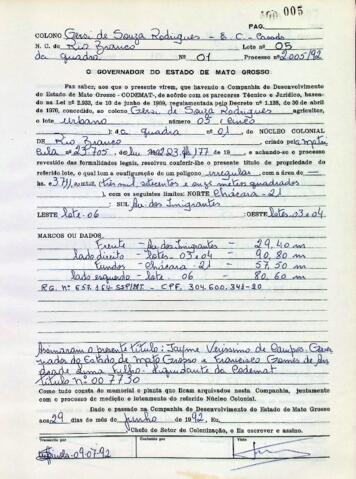 005
PAG.
COLONO Gersi de Souza Rodrigues - B. C. - Casado
N. C. de Rio Branco Lote nº 05
da quadra Nº 01 Processo nº 2005/92
O GOVERNADOR DO ESTADO DE MATO GROSSO
Faz saber, aos que o presente virem, que havendo a Companhia de Desenvolvimento
do Estado de Mato Grosso - CODEMAT, de acordo com os pareceres Técnico e Jurídico, baseado
na Lei nº 2.933, de 10 de junho de 1969, regulamentada pelo Decreto nº 1.138, de 30 de abril
de 1970, concedido, ao colono Gersi de Souza Rodrigues agricultor,
o lote urbano nº 05 (cinco
); da quadra nº 01 do NÚCLEO COLONIAL
DE Rio Branco, criado pela
nº 23.705, do 177 de 19 , e achando-se o processo
revestido das formalidades legais, resolveu conferir-lhe o presente título de propriedade do
referido lote, o qual tem a configuração de um polígono irregular, com a área de
3.711,00 m2, (três mil, setecentos e onze metros quadrados
), com os seguintes limites: NORTE Chácara - 21
SUL Av. dos Imigrantes
LESTE lote - 06 OESTE lotes - 03 e 04
MARCOS OU DADOS.
Frente - Av. dos Imigrantes - 29,40 m
lado direito - lotes - 03 e 04 - 90,80 m
Fundos - Chácara - 21 - 57,50 m
lado esquerdo - lote - 06 - 80,60 m
RG. nº 657.454 SSP/MT - CPF. 304.600.341-20
Assinaram o presente título: Jayme Veríssimo de Campos - Gover
nador do Estado de Mato Grosso e Francisco Gomes de An
drade Lima Filho - Liquidante da Codemat
Título nº 007750
Tudo consta do memorial e planta que ficam arquivados nesta Companhia, juntamente
com o processo de medição e loteamento do referido Núcleo Colonial.
Dado e passado na Companhia de Desenvolvimento do Estado de Mato Grosso
aos 29 dias do mês de junho de 1992. Eu,
Chefe do Setor de Colonização, o Escrevi e assino.
Transcrito por Conferido por Visto
09-07-92